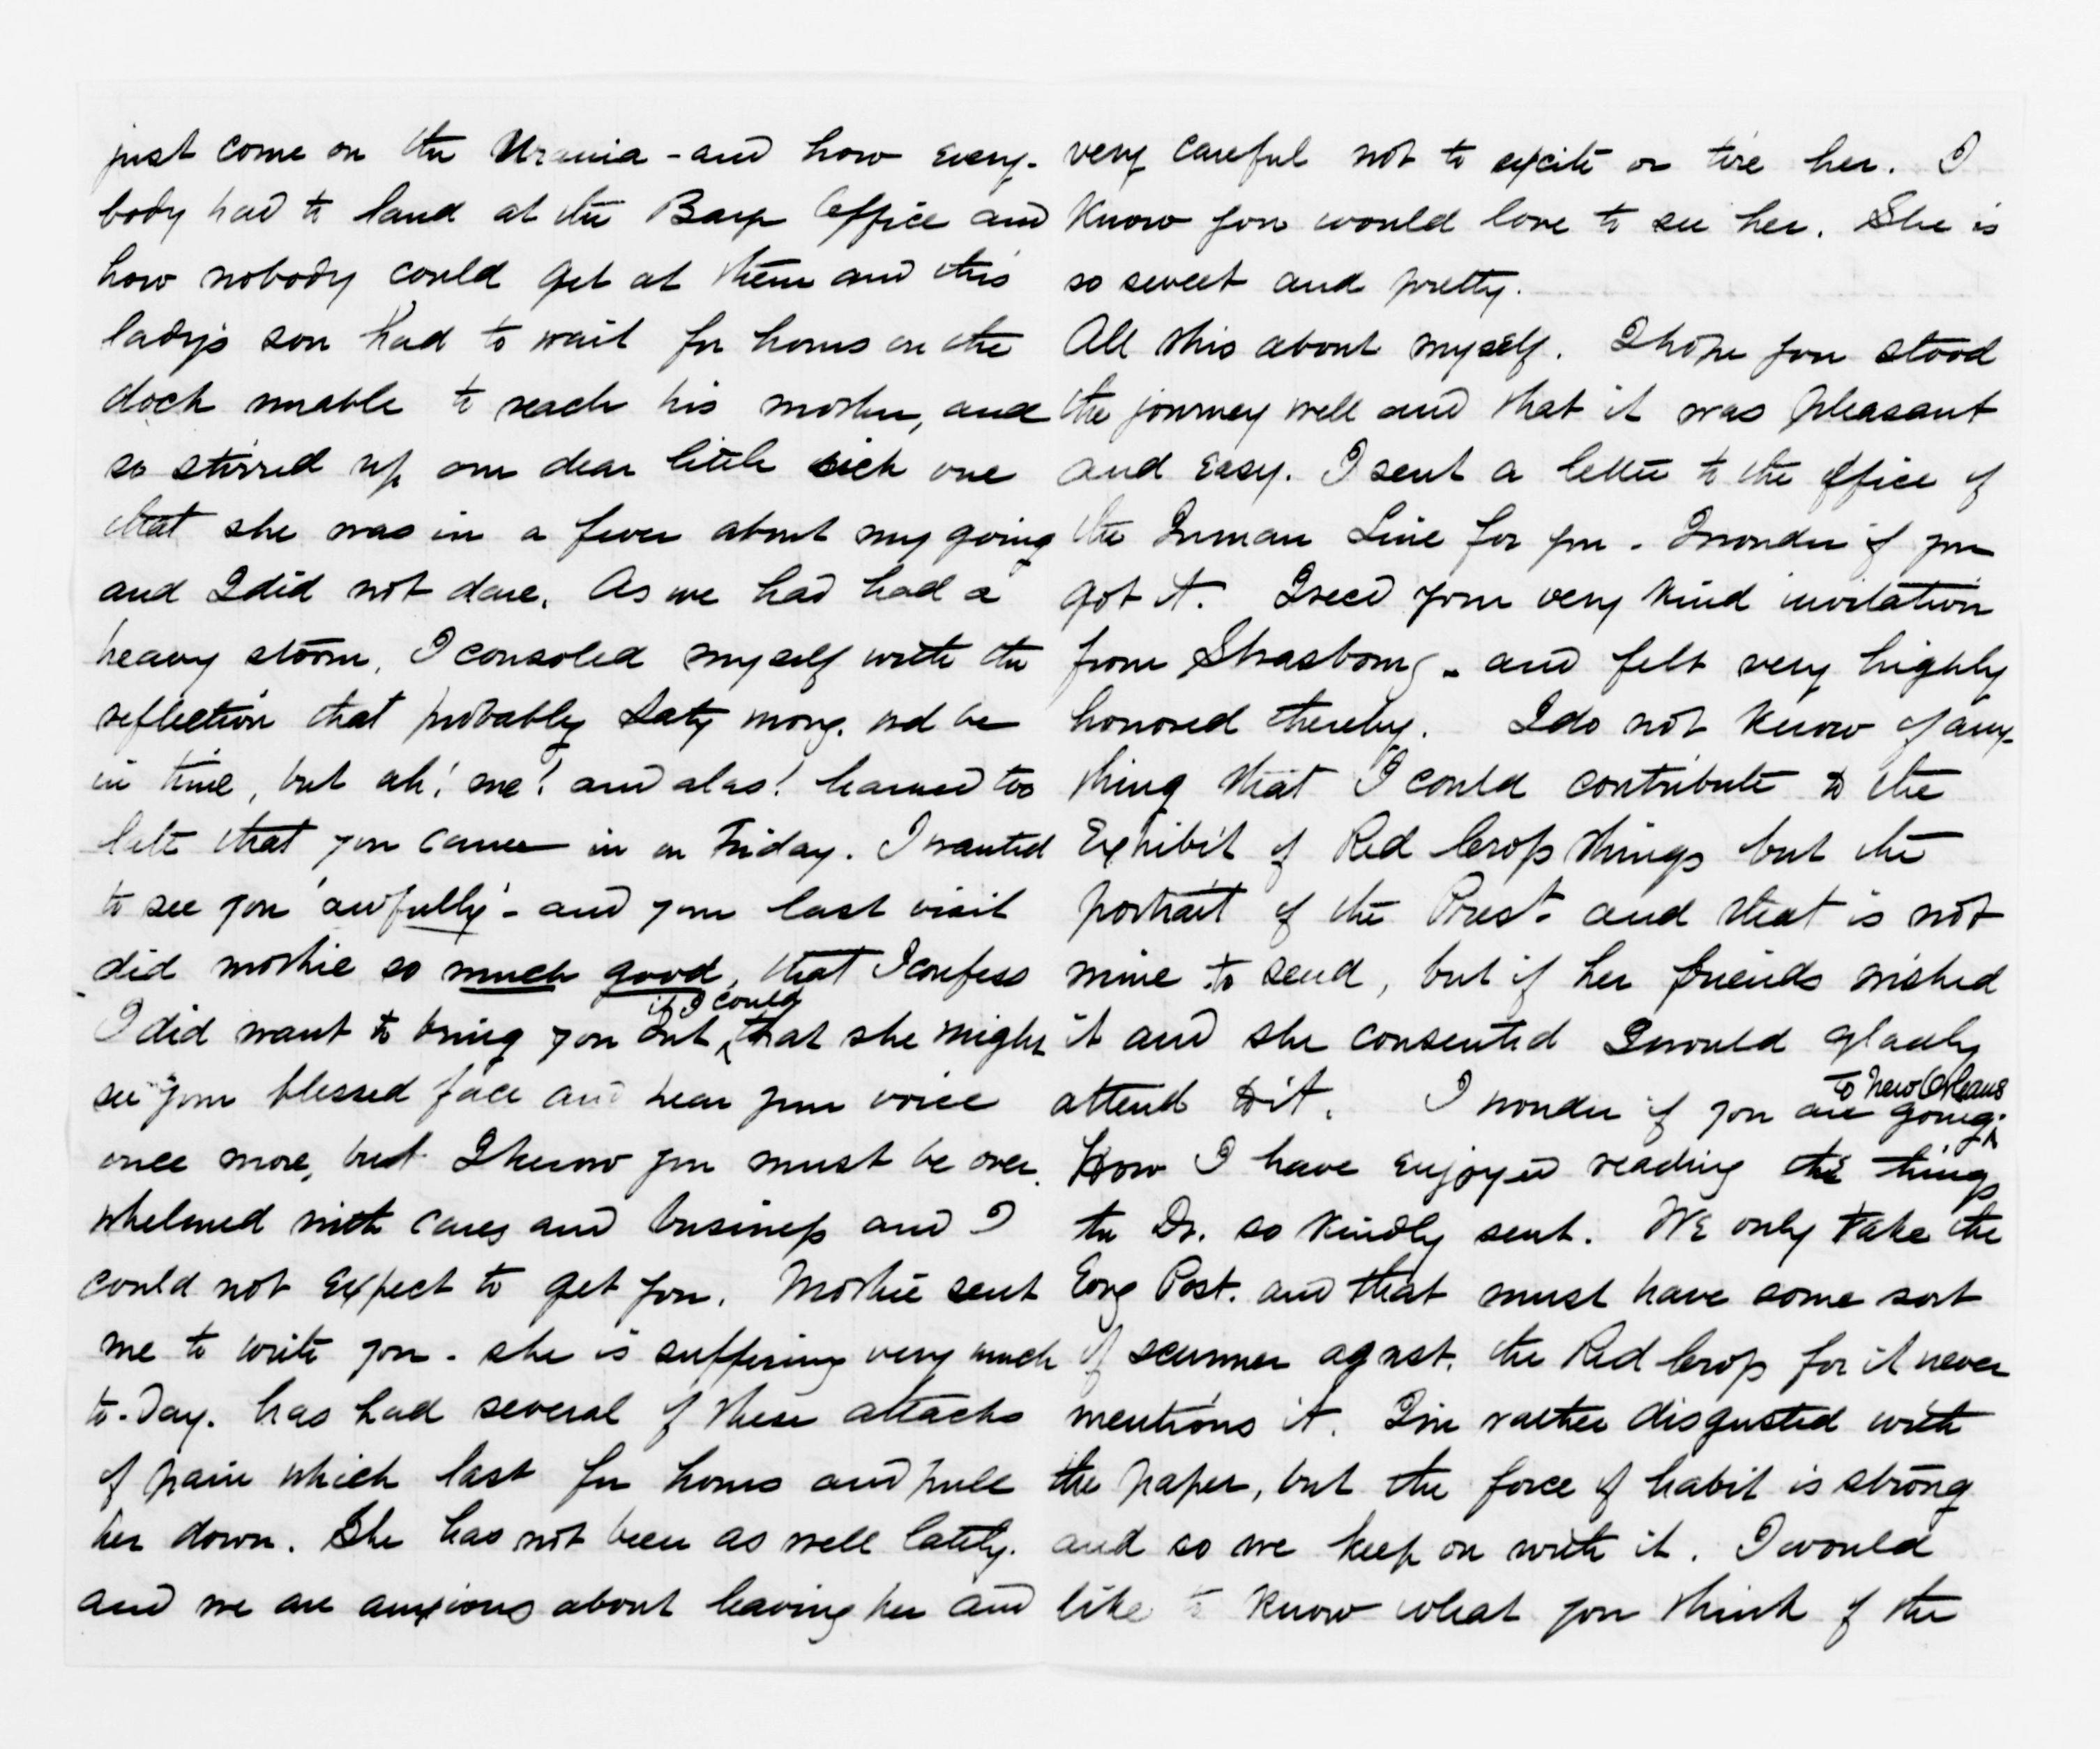 just come on the Urania - and how every-
body had to land at the Barge Office and
how nobody could get at them and this
lady's son had to wait for hours on the
dock unable to reach his mother, and
so stirred up our dear little sick one
that she was in a fever about my going
and I did not dare. As we had had a
heavy storm, I consoled myself with the
reflection that probably Saty morng. wd be
in time, but ah! me! and alas! learned too
late that you came in on Friday. I wanted
to see you 'awfully' - and your last visit
did mothie so much good, that I confess
I did want to bring you out, if I could that she might
see your blessed face and hear your voice
once more, but I know you must be over-
whelmed with cares and business and I
could not expect to get you. Mothie sent
me to write you - she is suffering very much
to-day. has had several of these attacks
of pain which last for hours and pull
her down. She has not been as well lately.
and we are anxious about leaving her and
very careful not to excite or tire her. I
know you would love to see her. She is
so sweet and pretty.
All this about myself. I hope you stood
the journey well and that it was pleasant
and easy. I sent a letter to the office of
the Inman Line for you - I wonder if you
got it. I recd your very kind invitation
from Strasbourg - and felt very highly
honored thereby. I do not know of any-
thing that I could contribute to the
Exhibit of Red Cross things but the
portrait of the Prest. and that is not
mine to send, but if her friends wished
it and she consented I would gladly
attend to it. I wonder if you are going to New Orleans.
How I have enjoyed reading the things
the Dr. so kindly sent. We only take the
Evng Post. and that must have some sort
of scunner agnst. the Red Cross for it never
mentions it. I'm rather disgusted with
the paper, but the force of habit is strong
and so we keep on with it. I would
like to know what you think of the